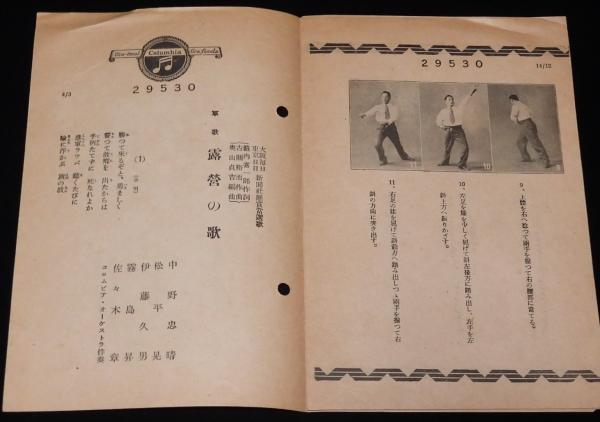 14/12
29530
9
10
11
9、上體を右へ捻つて兩手を揃つて右の腰部に當てる。
10、左足を膝を少しく屈げて斜左後方に踏み出し、左手を左
斜上方へ振りかざす。
11、右足の膝を屈げて斜前方へ踏み出しつゝ兩手を揃つて右
斜の方向に突き出す。
Viva-tonal
Columbia
Grafonola
29530
4/3
大阪毎日
東京日日
新聞社懸賞當選歌
軍歌
露營の歌
藪內喜一郎作詞
古關裕而作曲
奥山貞吉編曲
中野忠晴
松平晃
伊藤久男
霧島昇
佐々木章
コロムビア・オーケストラ伴奏
(1)
勝つて來るぞと 勇ましく
誓つて故鄕を 出たからは
手柄たてずに 死なれよか
進軍ラッパ 聽くたびに
瞼に浮かぶ 旗の波